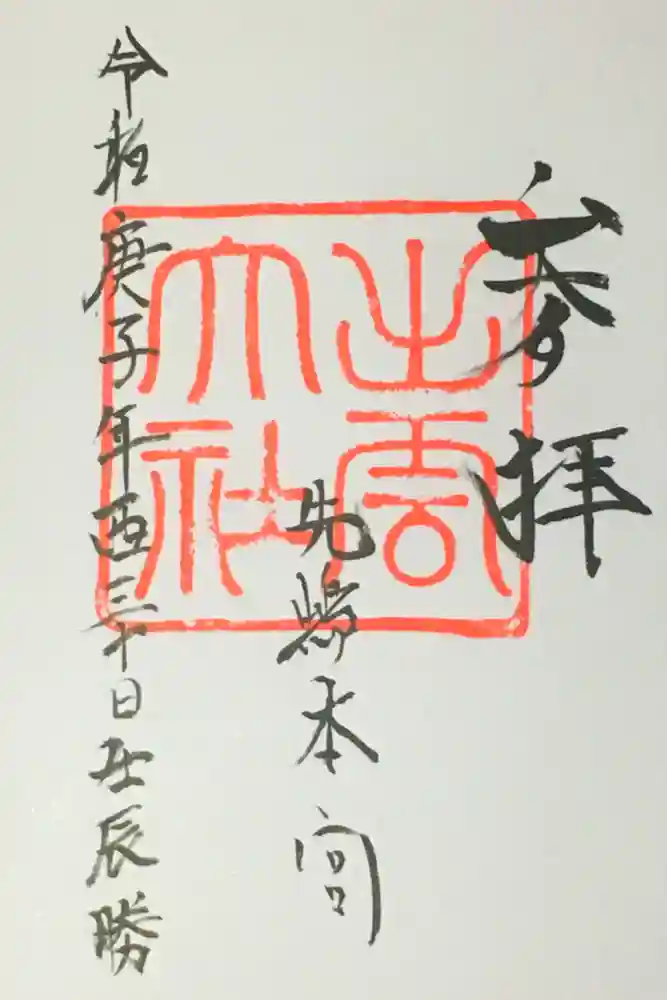 参拝
出雲大社
先嶋本宮
令和庚子年酉三十日壬辰勝